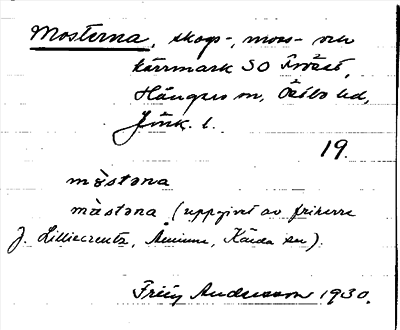 Mosterna, skogs-, moss- och
kärrmark SO Svåsö,
Hånger sn, Östbo hd,
Jönk. l.
19.
mɷ̀stəna
mɷ̀stəna (uppgivet av friherre
J. Lilliecreutz, Aminne, Kärda sn).
Andersson 1930.